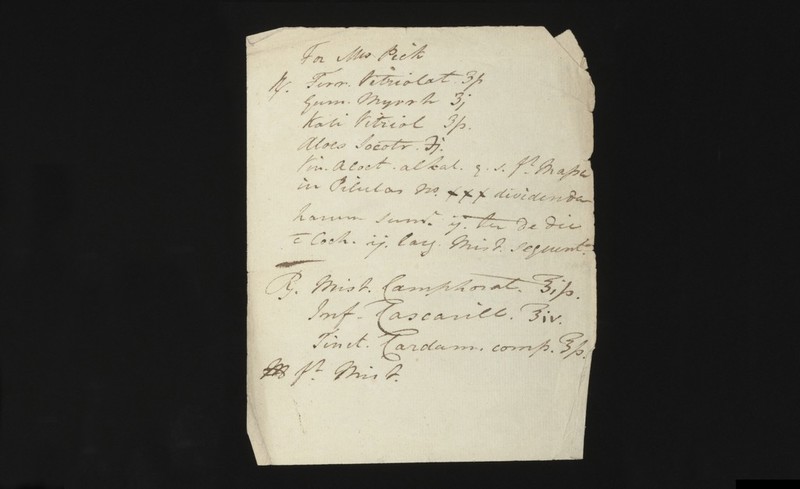 For Mrs Pick
℞. Ferr. Vitriolat. ʒß
Gum. Myrrh ʒj
Kali Vitriol ʒß.
Aloes Socotr. ʒj.
Vin. Aloet. alkal. q. s. ft. Massa
in Pilulas No. xxx dividenda
harum sum.t ij. ter de die
c Coch. ij. larg. Mist. sequent.
℞. Mist. Camphorat. ℥iß.
Inf. Cascarill. ℥iv.
Tinct. Cardam. comp. ℥ß.
ft. Mist.